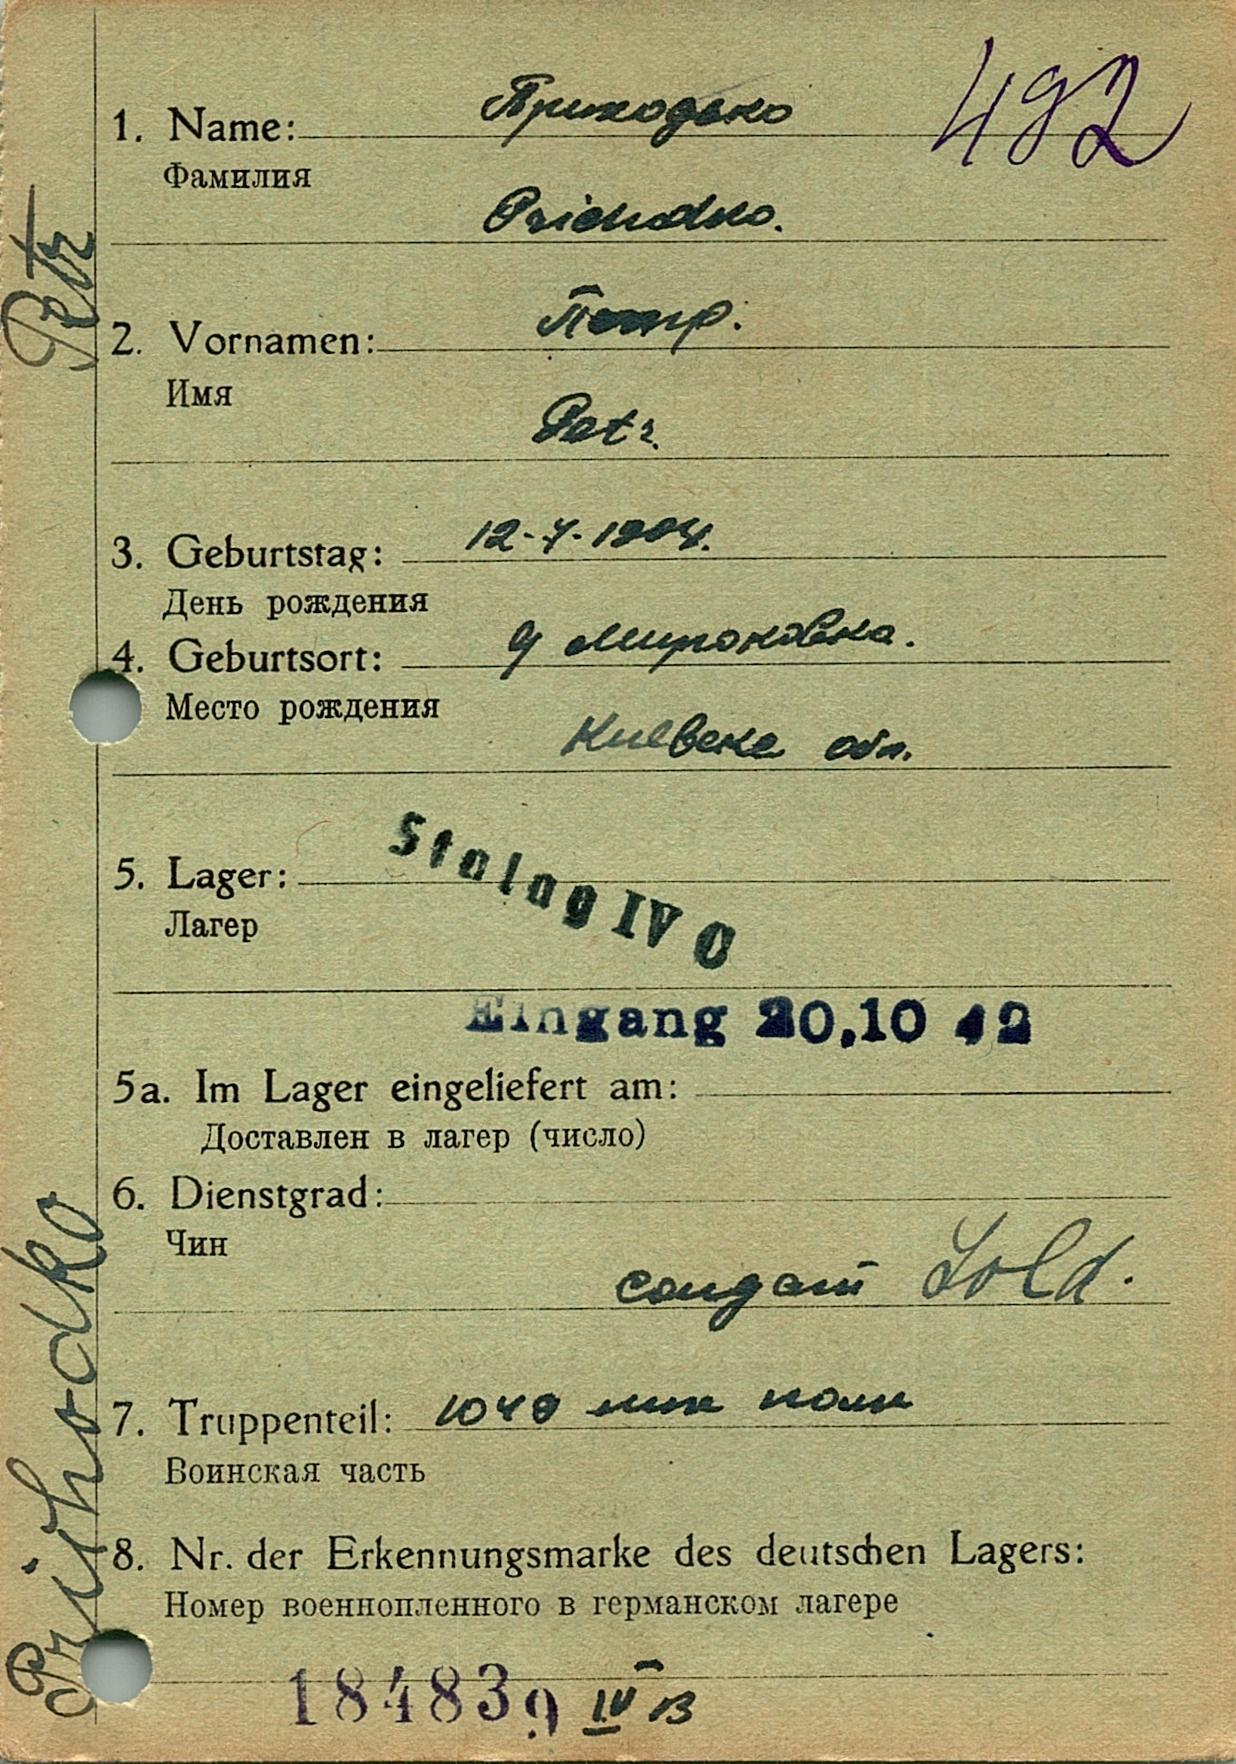 492
1. Name: Приходько
Фамилия
Prichodko.
2. Vornamen: Петр.
Имя
Petr.
3. Geburtstag: 12-4-1904.
День рождения
4. Geburtsort: д Мироновка.
Место рождения
Киевска обл.
5. Lager: Stalag IV C
Лагер
Eingang 20.10 42
5a. Im Lager eingeliefert am:
Доставлен в лагер (число)
6. Dienstgrad:
Чин
солдат Sold.
7. Truppenteil: 1049 полк
Воинская часть
8. Nr. der Erkennungsmarke des deutschen Lagers:
Номер военнопленного в германском лагере
184839 IV B
Prihodko Petr